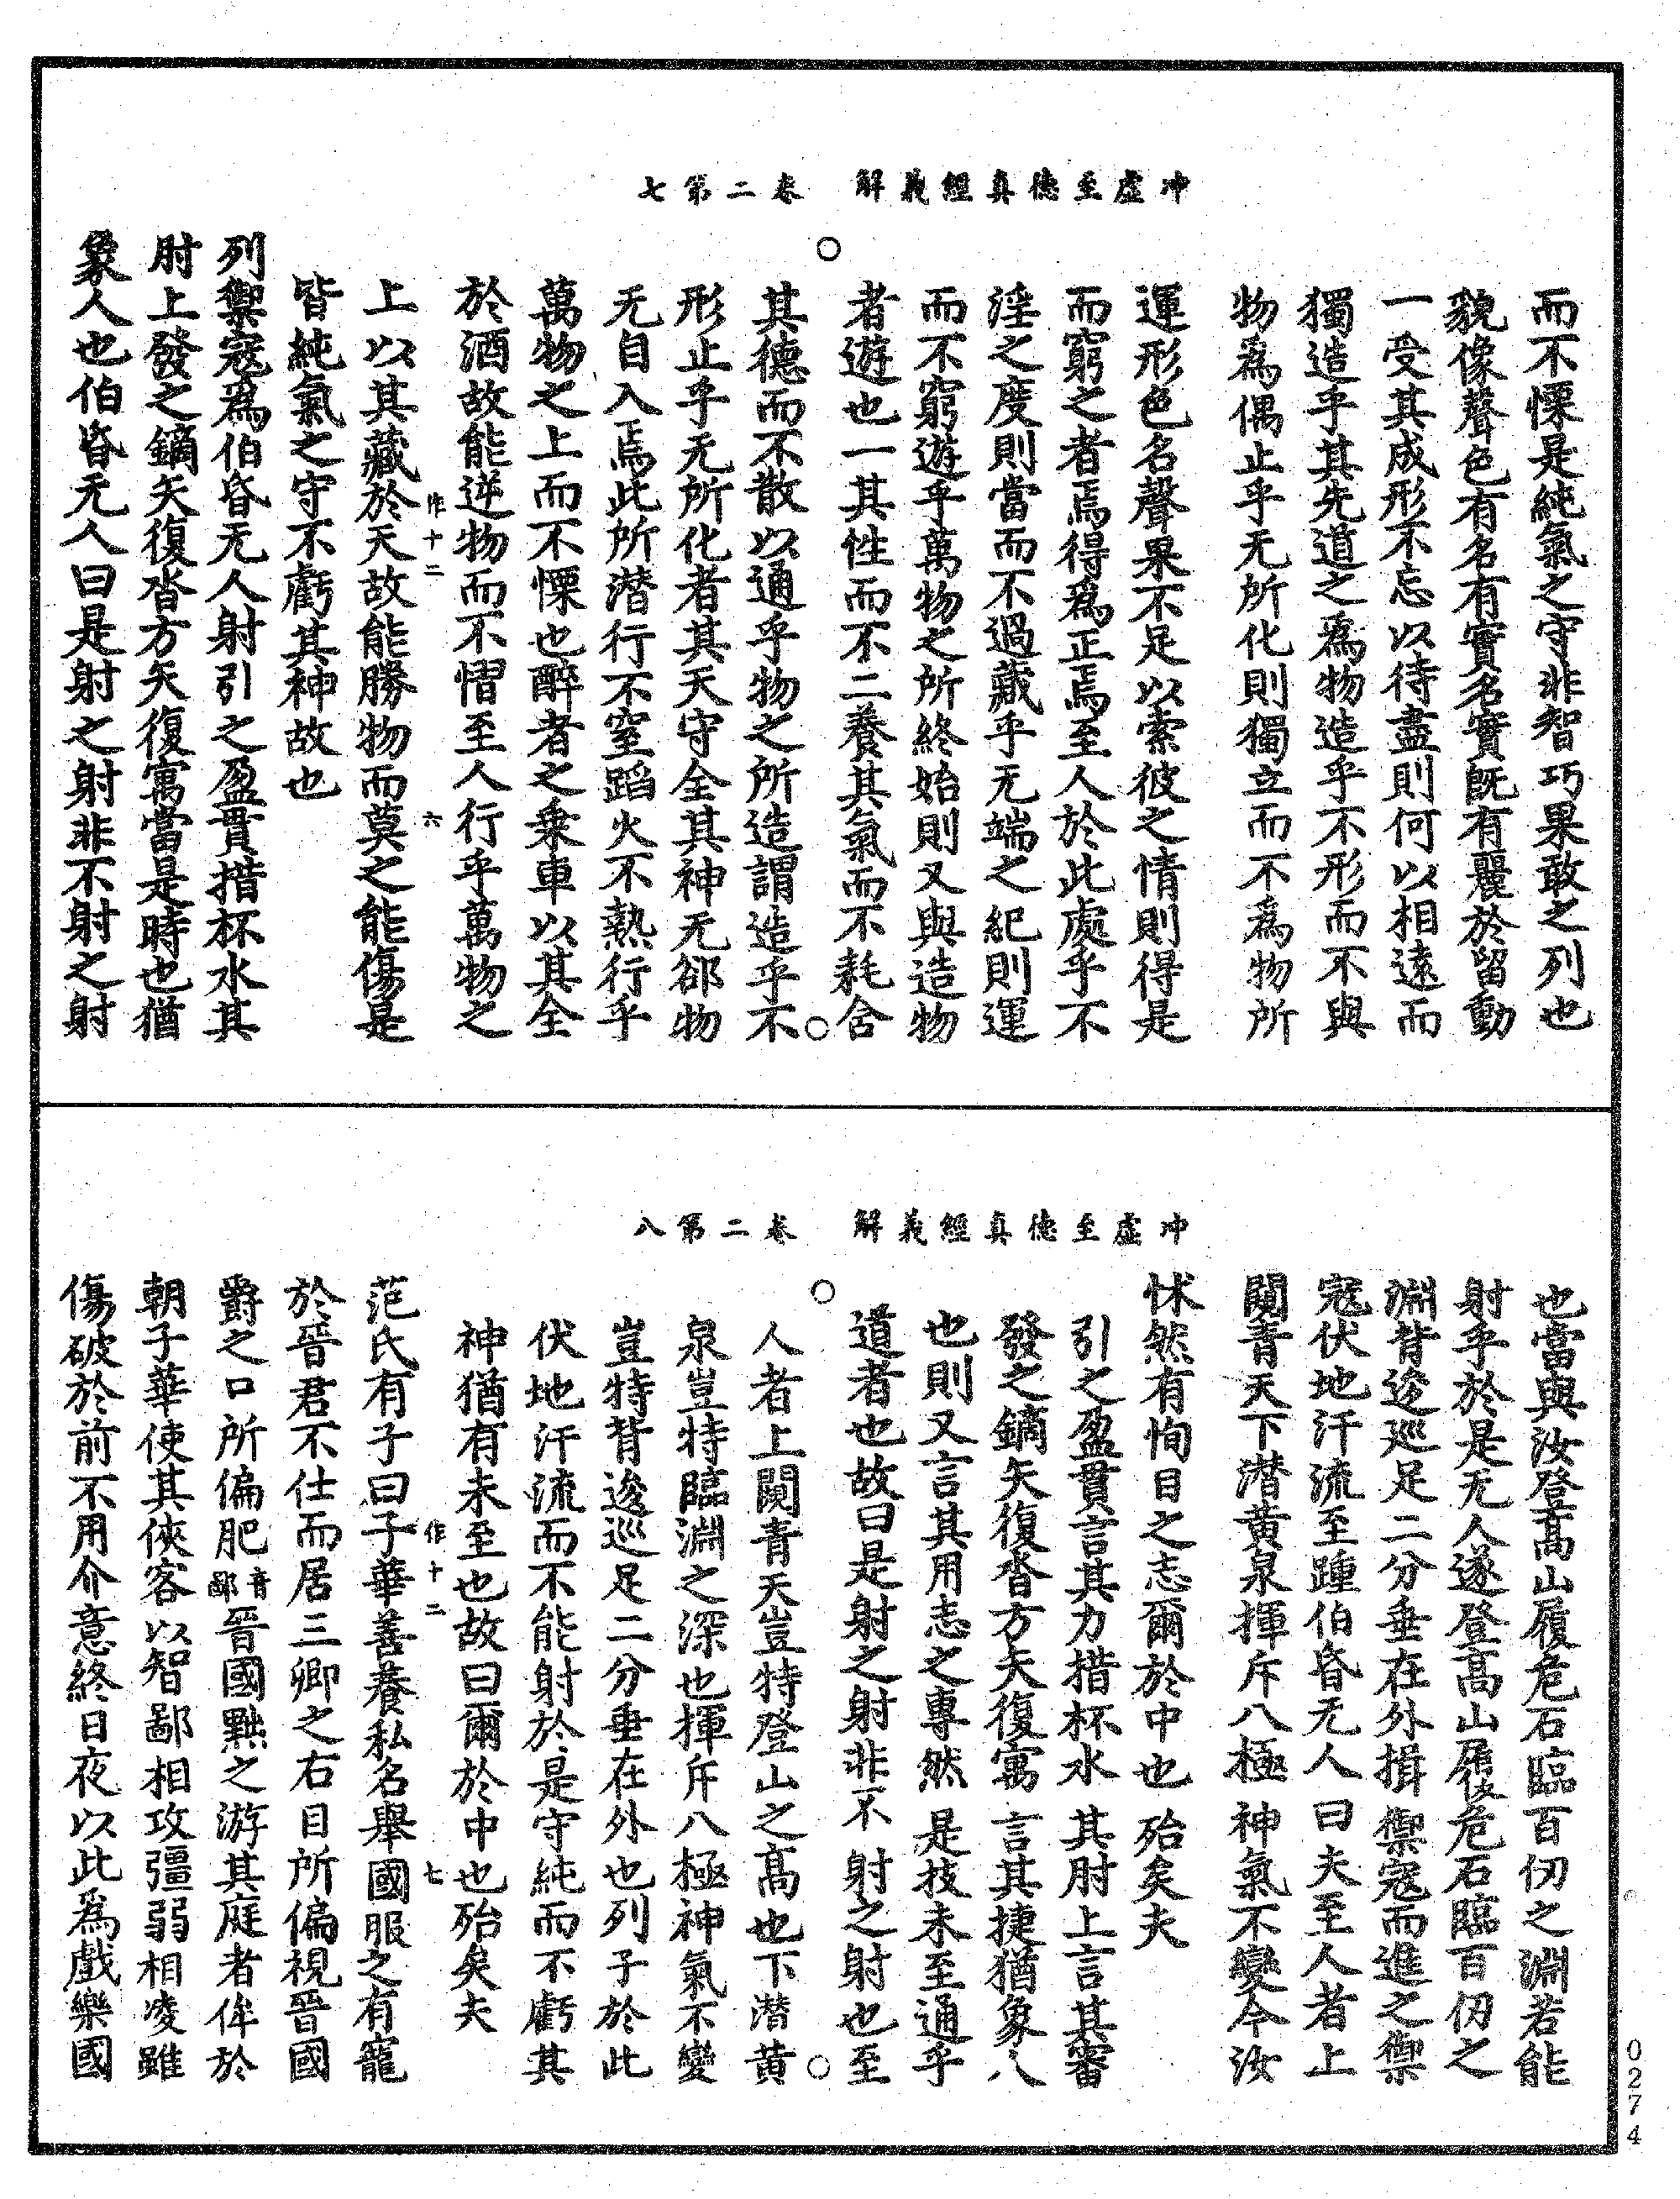 冲虛至德真經義解　卷二第七
而不慄是純氣之守非智巧果敢之列也
貌像聲色有名有實名實旣有麗於留動
一受其成形不忘以待盡則何以相遠而
獨造乎其先道之爲物造乎不形而不與
物爲偶止乎无所化則獨立而不爲物所
運形色名聲果不足以索彼之情則得是
而窮之者焉得爲正焉至人於此處乎不
淫之度則當而不過藏乎无端之紀則運
而不窮遊乎萬物之所終始則又與造物
者遊也一其性而不二養其氣而不耗含
其德而不散以通乎物之所造謂造乎不
形止乎无所化者其天守全其神无郤物
无自入焉此所潛行不窒蹈火不熱行乎
萬物之上而不慄也醉者之乗車以其全
於酒故能逆物而不慴至人行乎萬物之
作十二　六
上以其藏於天故能勝物而莫之能傷是
皆純氣之守不虧其神故也
列禦寇爲伯昏无人射引之盈貫措杯水其
肘上發之鏑矢復沓方矢復寓當是時也猶
象人也伯昏无人曰是射之射非不射之射
冲虛至德真經義解　卷二第八
也當與汝登高山履危石臨百仞之淵若能
射乎於是无人遂登高山履危石臨百仞之
淵背逡巡足二分垂在外揖禦寇而進之禦
寇伏地汗流至踵伯昏无人曰夫至人者上
闚青天下潛黃泉揮斥八極神氣不變今汝
怵然有恂目之志爾於中也殆矣夫
引之盈貫言其力措杯水其肘上言其審
發之鏑矢復沓方矢復寓言其捷猶象人
也則又言其用志之專然是技未至通乎
道者也故曰是射之射非不射之射也至
人者上闚青天豈特登山之高也下潛黃
泉豈特臨淵之深也揮斥八極神氣不變
豈特背逡巡足二分垂在外也列子於此
伏地汗流而不能射於是守純而不虧其
神猶有未至也故曰爾於中也殆矣夫
作十二　七
范氏有子曰子華善養私名舉國服之有寵
於晉君不仕而居三卿之右目所偏視晉國
爵之口所偏肥音鄙晉國黜之游其庭者侔於
朝子華使其俠客以智鄙相攻彊弱相凌雖
傷破於前不用介意終日夜以此爲戲樂國
0274